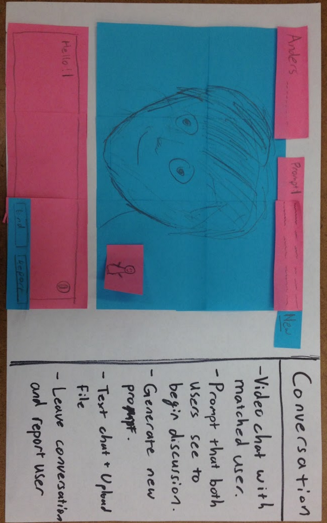 Anders
Prompt
New
Hello!
End
Report
Conversation
- Video chat with
matched user.
- Prompt that both
users see to
begin discussion.
- Generate new
prompt.
- Text chat + Upload
file
- Leave conversation
and report user